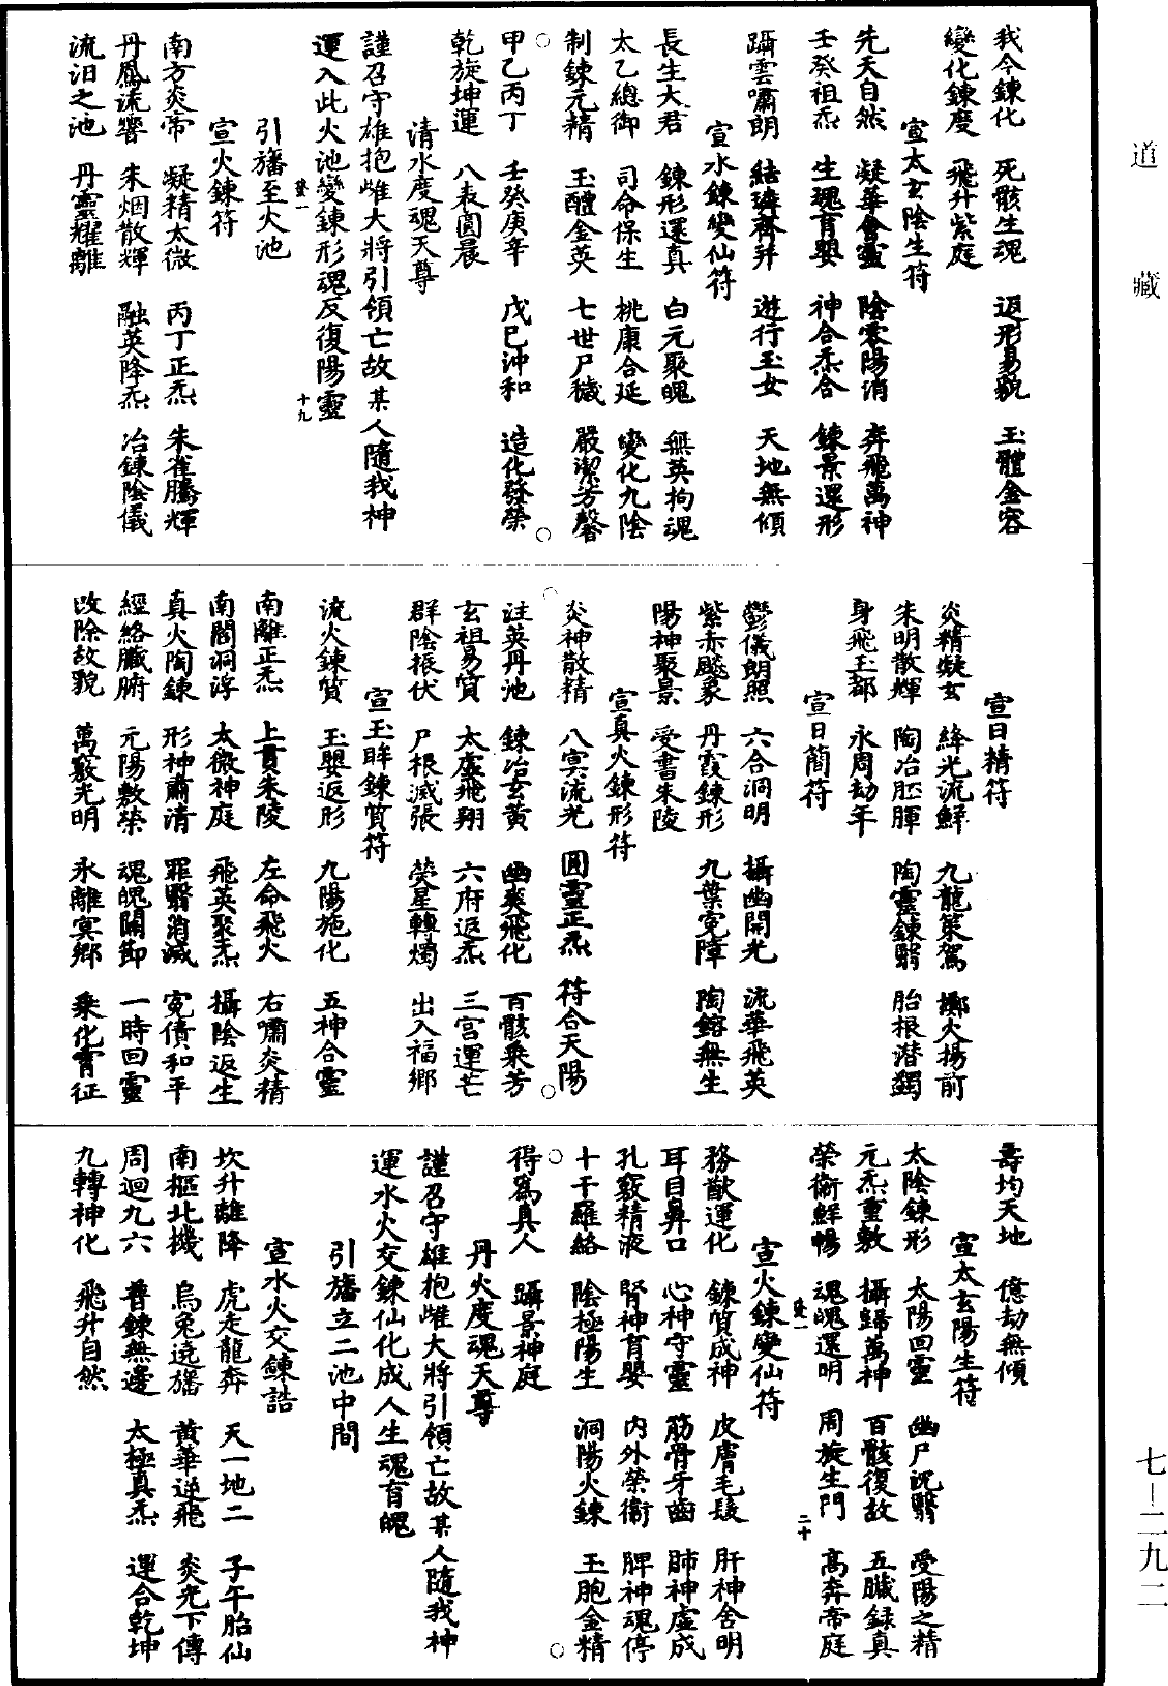 道藏
七－二九二
我今鍊化　死骸生魂　返形易貌　玉體金容
變化鍊度　飛升紫庭
宣太玄陰生符
先天自然　凝華會靈　陰零陽消　奔飛萬神
壬癸祖炁　生魂育嬰　神合炁合　鍊景還形
躡雲嘯朗　結璘齊昇　遊行玉女　天地無傾
宣水鍊變仙符
長生大君　鍊形還真　白元聚魄　無英拘魂
太乙總御　司命保生　桃康合延　變化九陰
制鍊元精　玉醴金英　七世尸穢　嚴潔芳馨
○　○
甲乙丙丁　壬癸庚辛　戊巳沖和　造化發榮
乾旋坤運　八表圓晨
清水度魂天尊
謹召守雄抱雌大將引領亡故某人隨我神
運入此火池變鍊形魂反復陽靈
十九
引旛至火池
宣火鍊符
南方炎帝　凝精太微　丙丁正炁　朱雀騰輝
丹鳳流響　朱烟散輝　融英降炁　冶鍊陰儀
流汨之池　丹靈耀離
宣日精符
炎精凝玄　絳光流鮮　九龍策駕　擲火揚前
朱明散輝　陶冶胚腪　陶靈鍊翳　胎根潛蠲
身飛玉都　永周劫年
宣日籣符
鬱儀朗照　六合洞明　攝幽開光　流華飛英
紫赤飈象　丹霞鍊形　九葉寃障　陶鎔無生
陽神聚景　受書朱陵
宣真火鍊形符
炎神散精　八㝠流光　圓靈正炁　符合天陽
○　○
注英丹池　鍊冶玄黃　幽爽飛化　百骸乘芳
玄祖易質　太虛飛翔　六府返炁　三宮運芒
群陰振伏　尸根滅張　熒星轉燭　出入福鄉
宣玉眸鍊質符
流火鍊質　玉嬰返形　九陽施化　五神合靈
南離正炁　上貫朱陵　左命飛火　右嘯炎精
南閣洞浮　太微神庭　飛英聚炁　攝陰返生
真火陶鍊　形神肅清　罪翳消滅　寃債和平
經絡臟腑　元陽敷榮　魂魄關節　一時回靈
改除故貌　萬竅光明　永離㝠鄉　乘化霄征
壽均天地　億劫無傾
宣太玄陽生符
太陰鍊形　太陽回靈　幽尸沉翳　受陽之精
元炁重敷　攝歸萬神　百骸復故　五臟録真
榮衛鮮暢　魂魄還明　周旋生門　高奔帝庭
二十
宣火鍊變仙符
務猷運化　鍊質成神　皮膚毛髮　肝神舍明
耳目鼻口　心神守靈　筋骨牙齒　肺神虛成
孔竅精液　腎神育嬰　内外榮衛　脾神魂停
十干羅絡　陰極陽生　洞陽火鍊　玉胞金精
○　○
得爲真人　躡景神庭
丹火度魂天尊
謹召守雄抱雌大將引領亡故某人隨我神
運水火交鍊仙化成人生魂育魄
引旛立二池中間
宣水火交鍊誥
坎升離降　虎走龍奔　天一地二　子午胎仙
南樞北機　烏兔遶旛　黄華逆飛　炎光下傳
周迴九六　普鍊無邊　太極真炁　運合乾坤
九轉神化　飛升自然